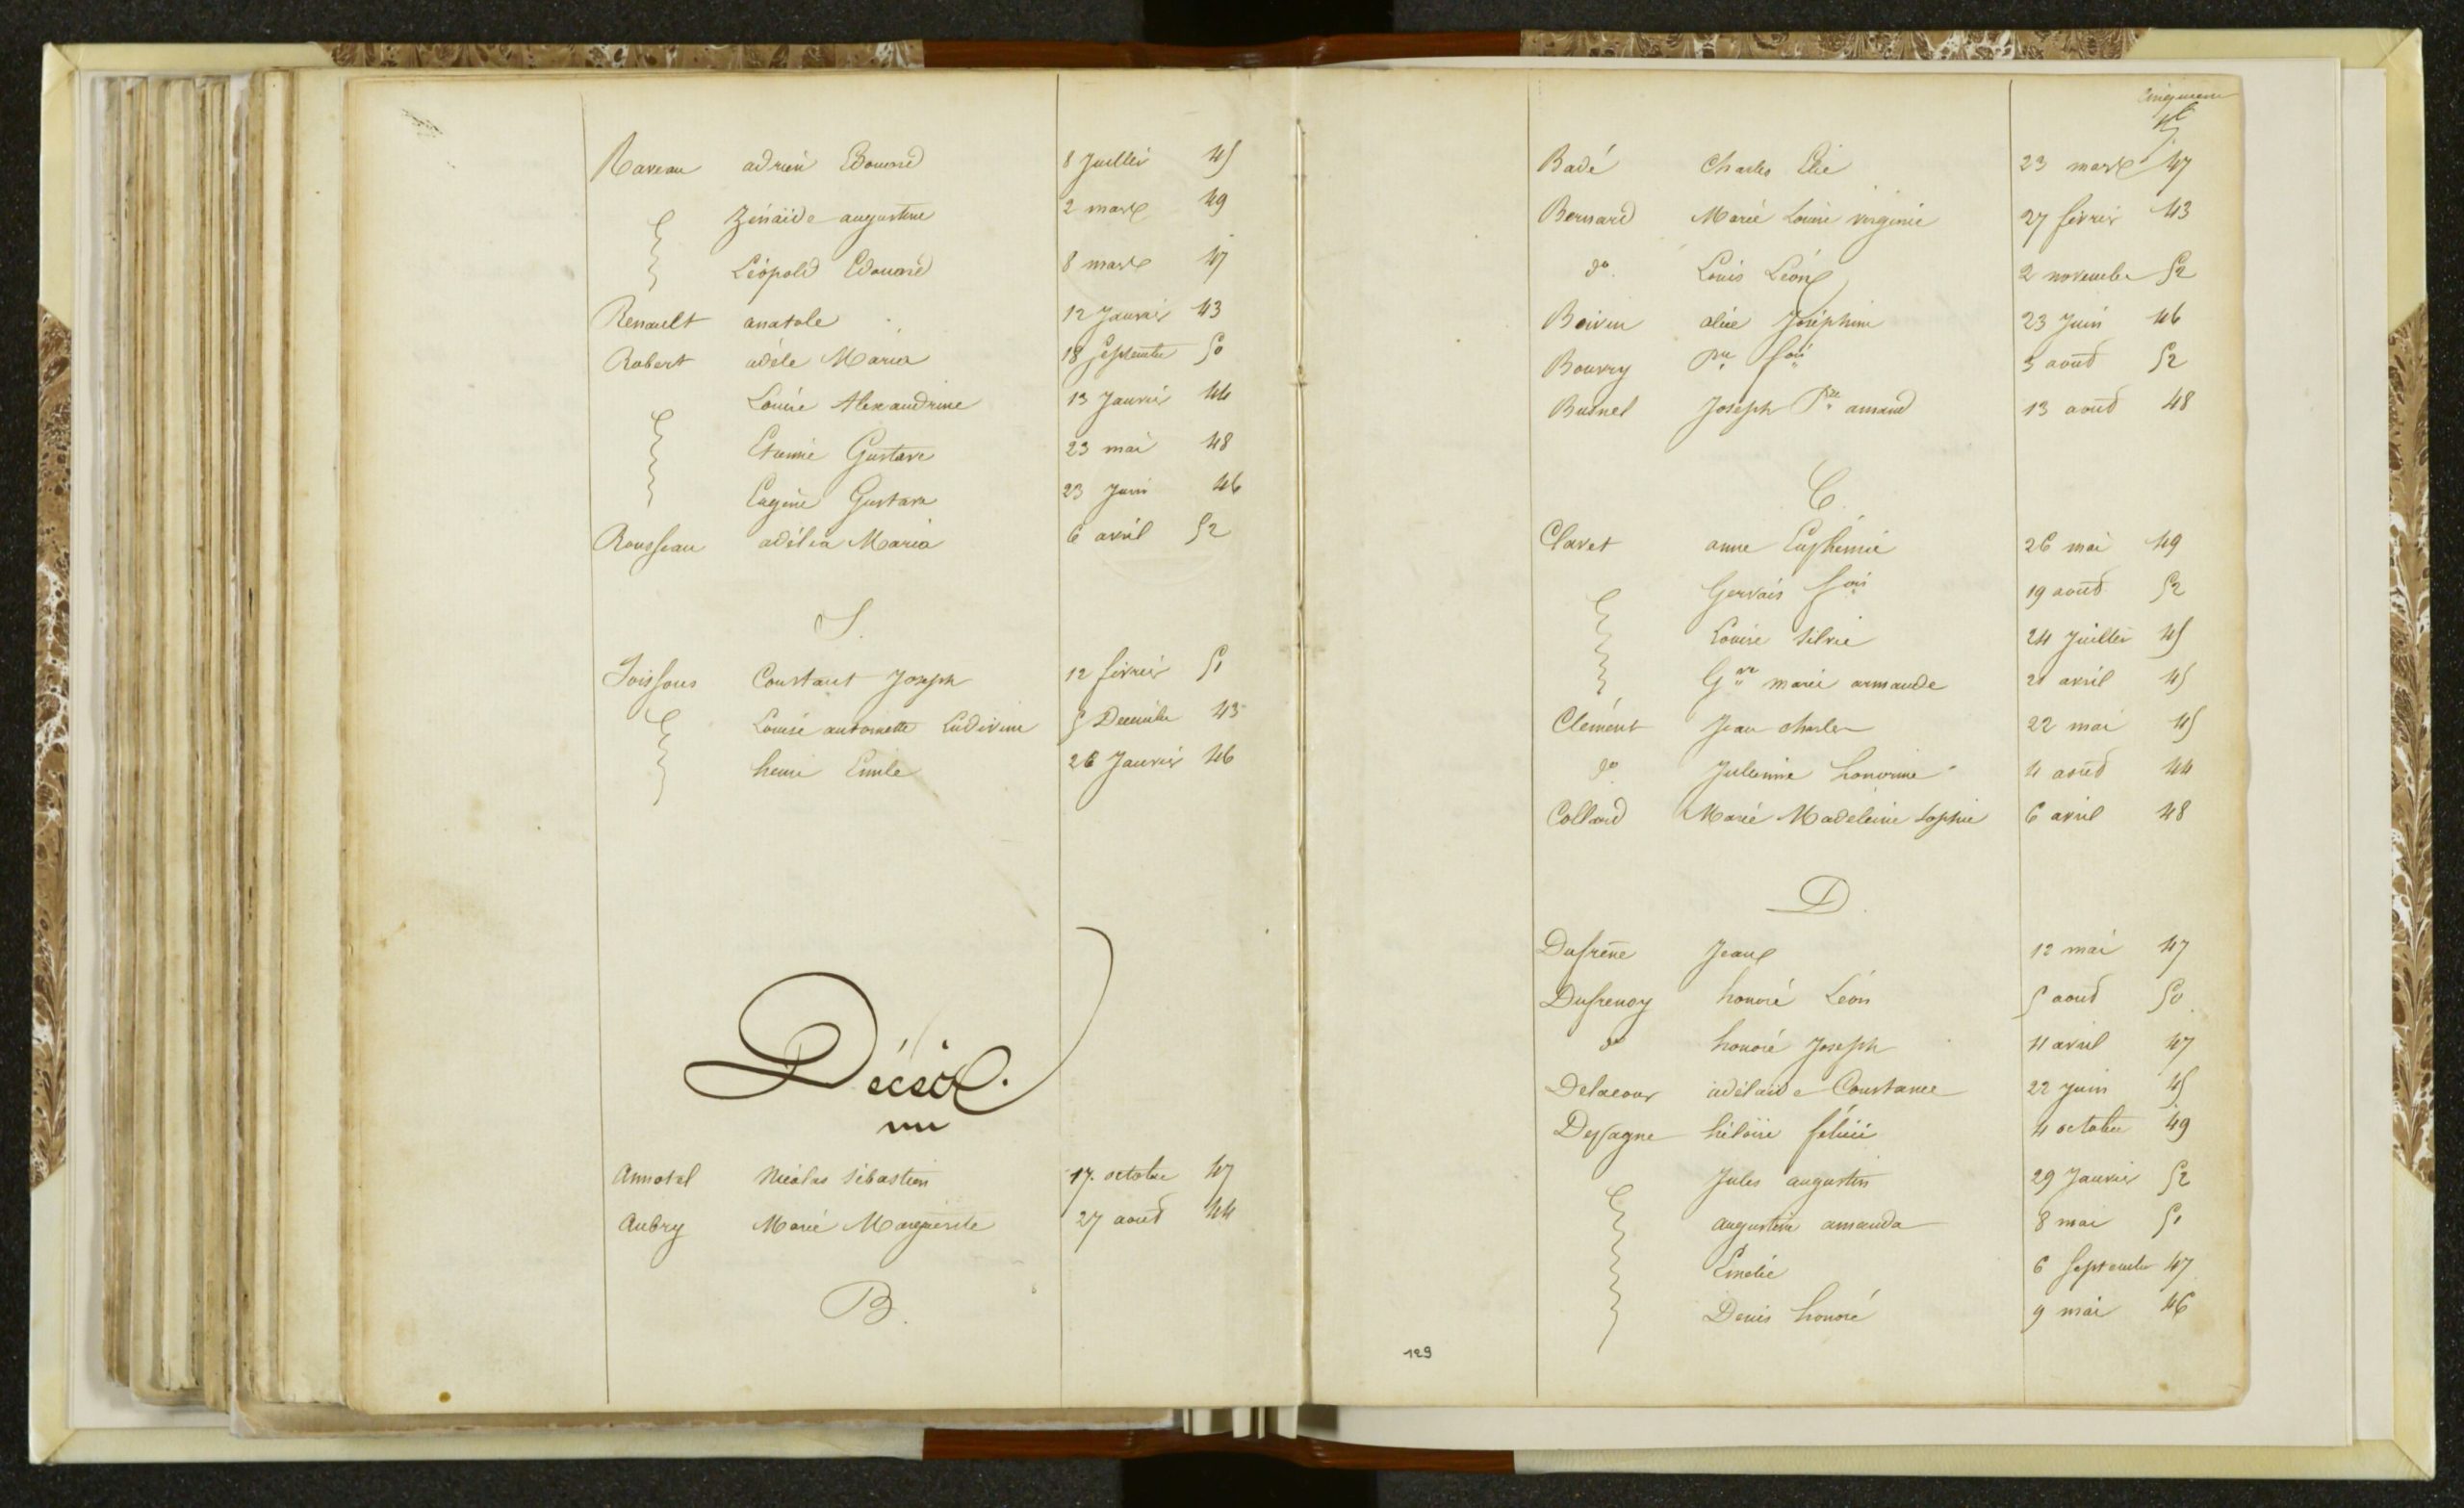 Raveau adrien Edouard 8 Juillet 45
Zénaïde augustine 2 mars 49
Léopold Edouard 8 mars 47
Renault anatole 12 Janvier 43
Robert adèle Maria 18 Septembre 50
Louise Alexandrine 13 Janvier 44
Etienne Gustave 23 mai 48
Eugène Gustave 23 Juin 46
Rousseau adélia Maria 6 avril 52
S.
Soissons Constant Joseph 12 février 51
Louise antoinette Ludivine 5 Décembre 43
henri Emile 26 Janvier 46
Décès.
Annotel Nicolas Sébastien 17. octobre 47
Aubry Marie Marguerite 27 août 44
B.
Badé Charles Elie 23 mars 47
Bernard Marie Louise virginie 27 février 43
do. Louis Léon 2 novembre 52
Boivin alice Joséphine 23 Juin 46
Bouvry Pre fois 3 août 52
Burnel Joseph Pre amand 13 août 48
C.
Clavet anne Euphémie 26 mai 49
Gervais fois 19 août 52
Louise Silvie 24 Juillet 45
Gve marie armande 21 avril 45
Clément Jean charles 22 mai 45
do. Julienne honorine 4 août 44
Collard Marie Madeleine Sophie 6 avril 48
D.
Dufrêne Jean 12 mai 47
Dufrenoy honoré Léon 5 août 50
do honoré Joseph 11 avril 47
Delacour adélaïde Constance 22 Juin 45
Dessagne héloïse félicie 4 octobre 49
Jules augustin 29 Janvier 52
augustine amanda 8 mai 51
Emélie 6 Septembre 47
Denis honoré 9 mai 46
129